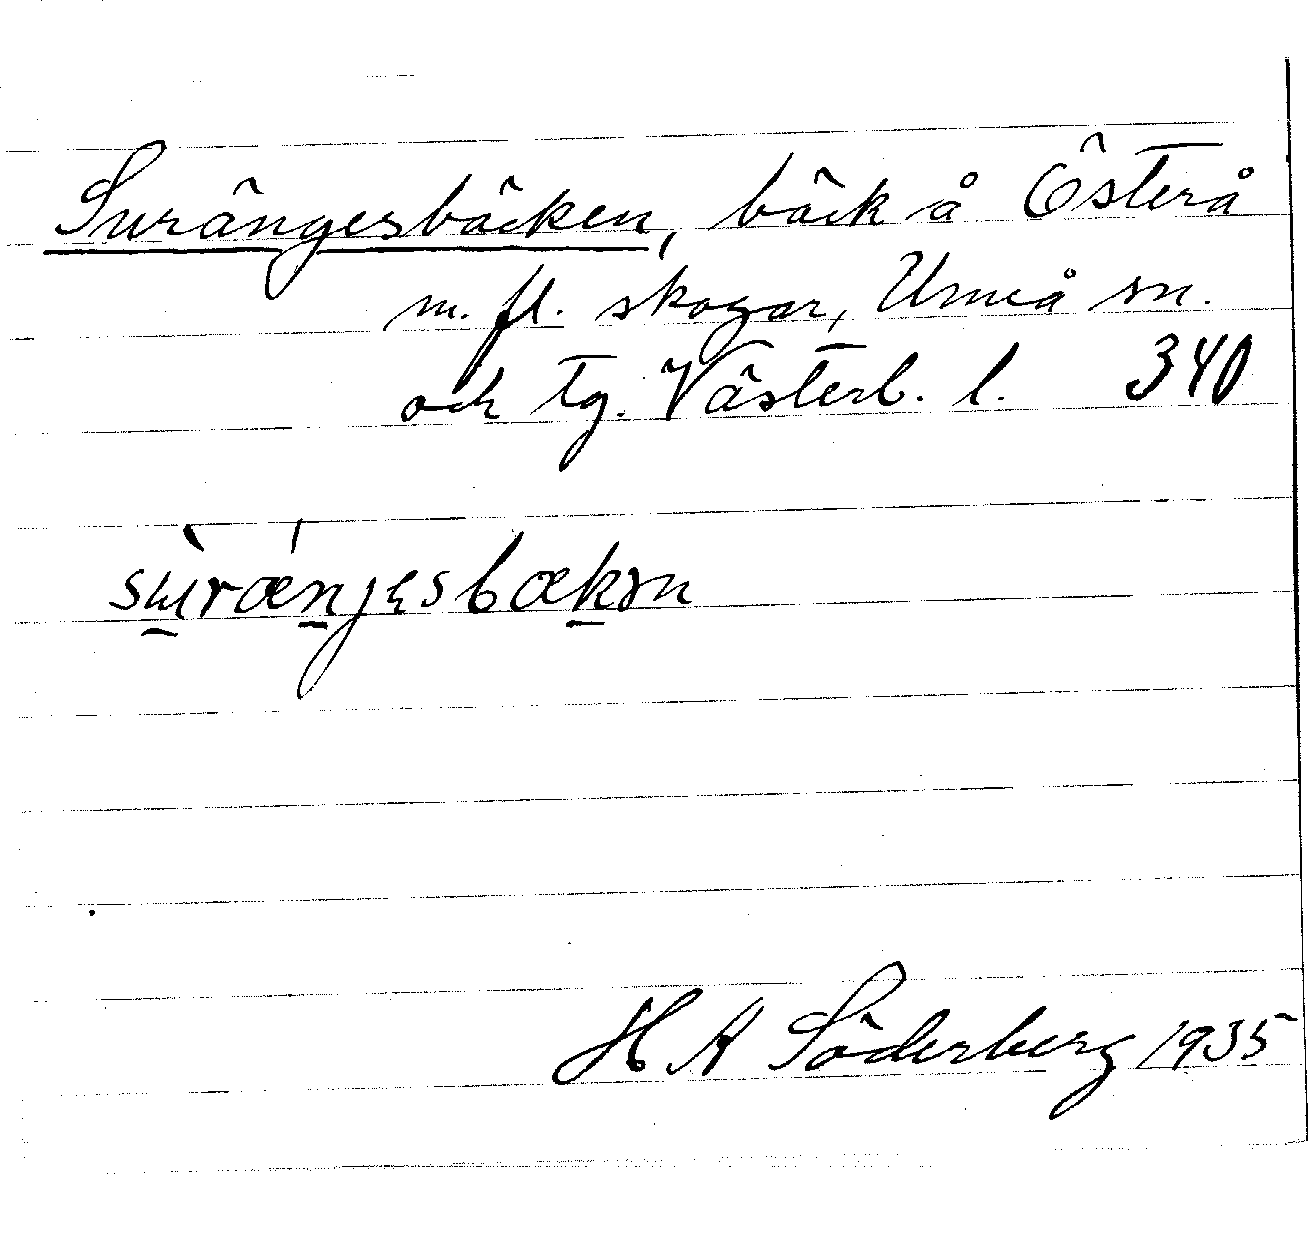 Surängesbäcken, bäck å Österå
m. fl. skogar, Umeå sn.
och tg. Västerb. l. 340
su̱ràn̠jesbæk̠ən
H A Söderberg 1935